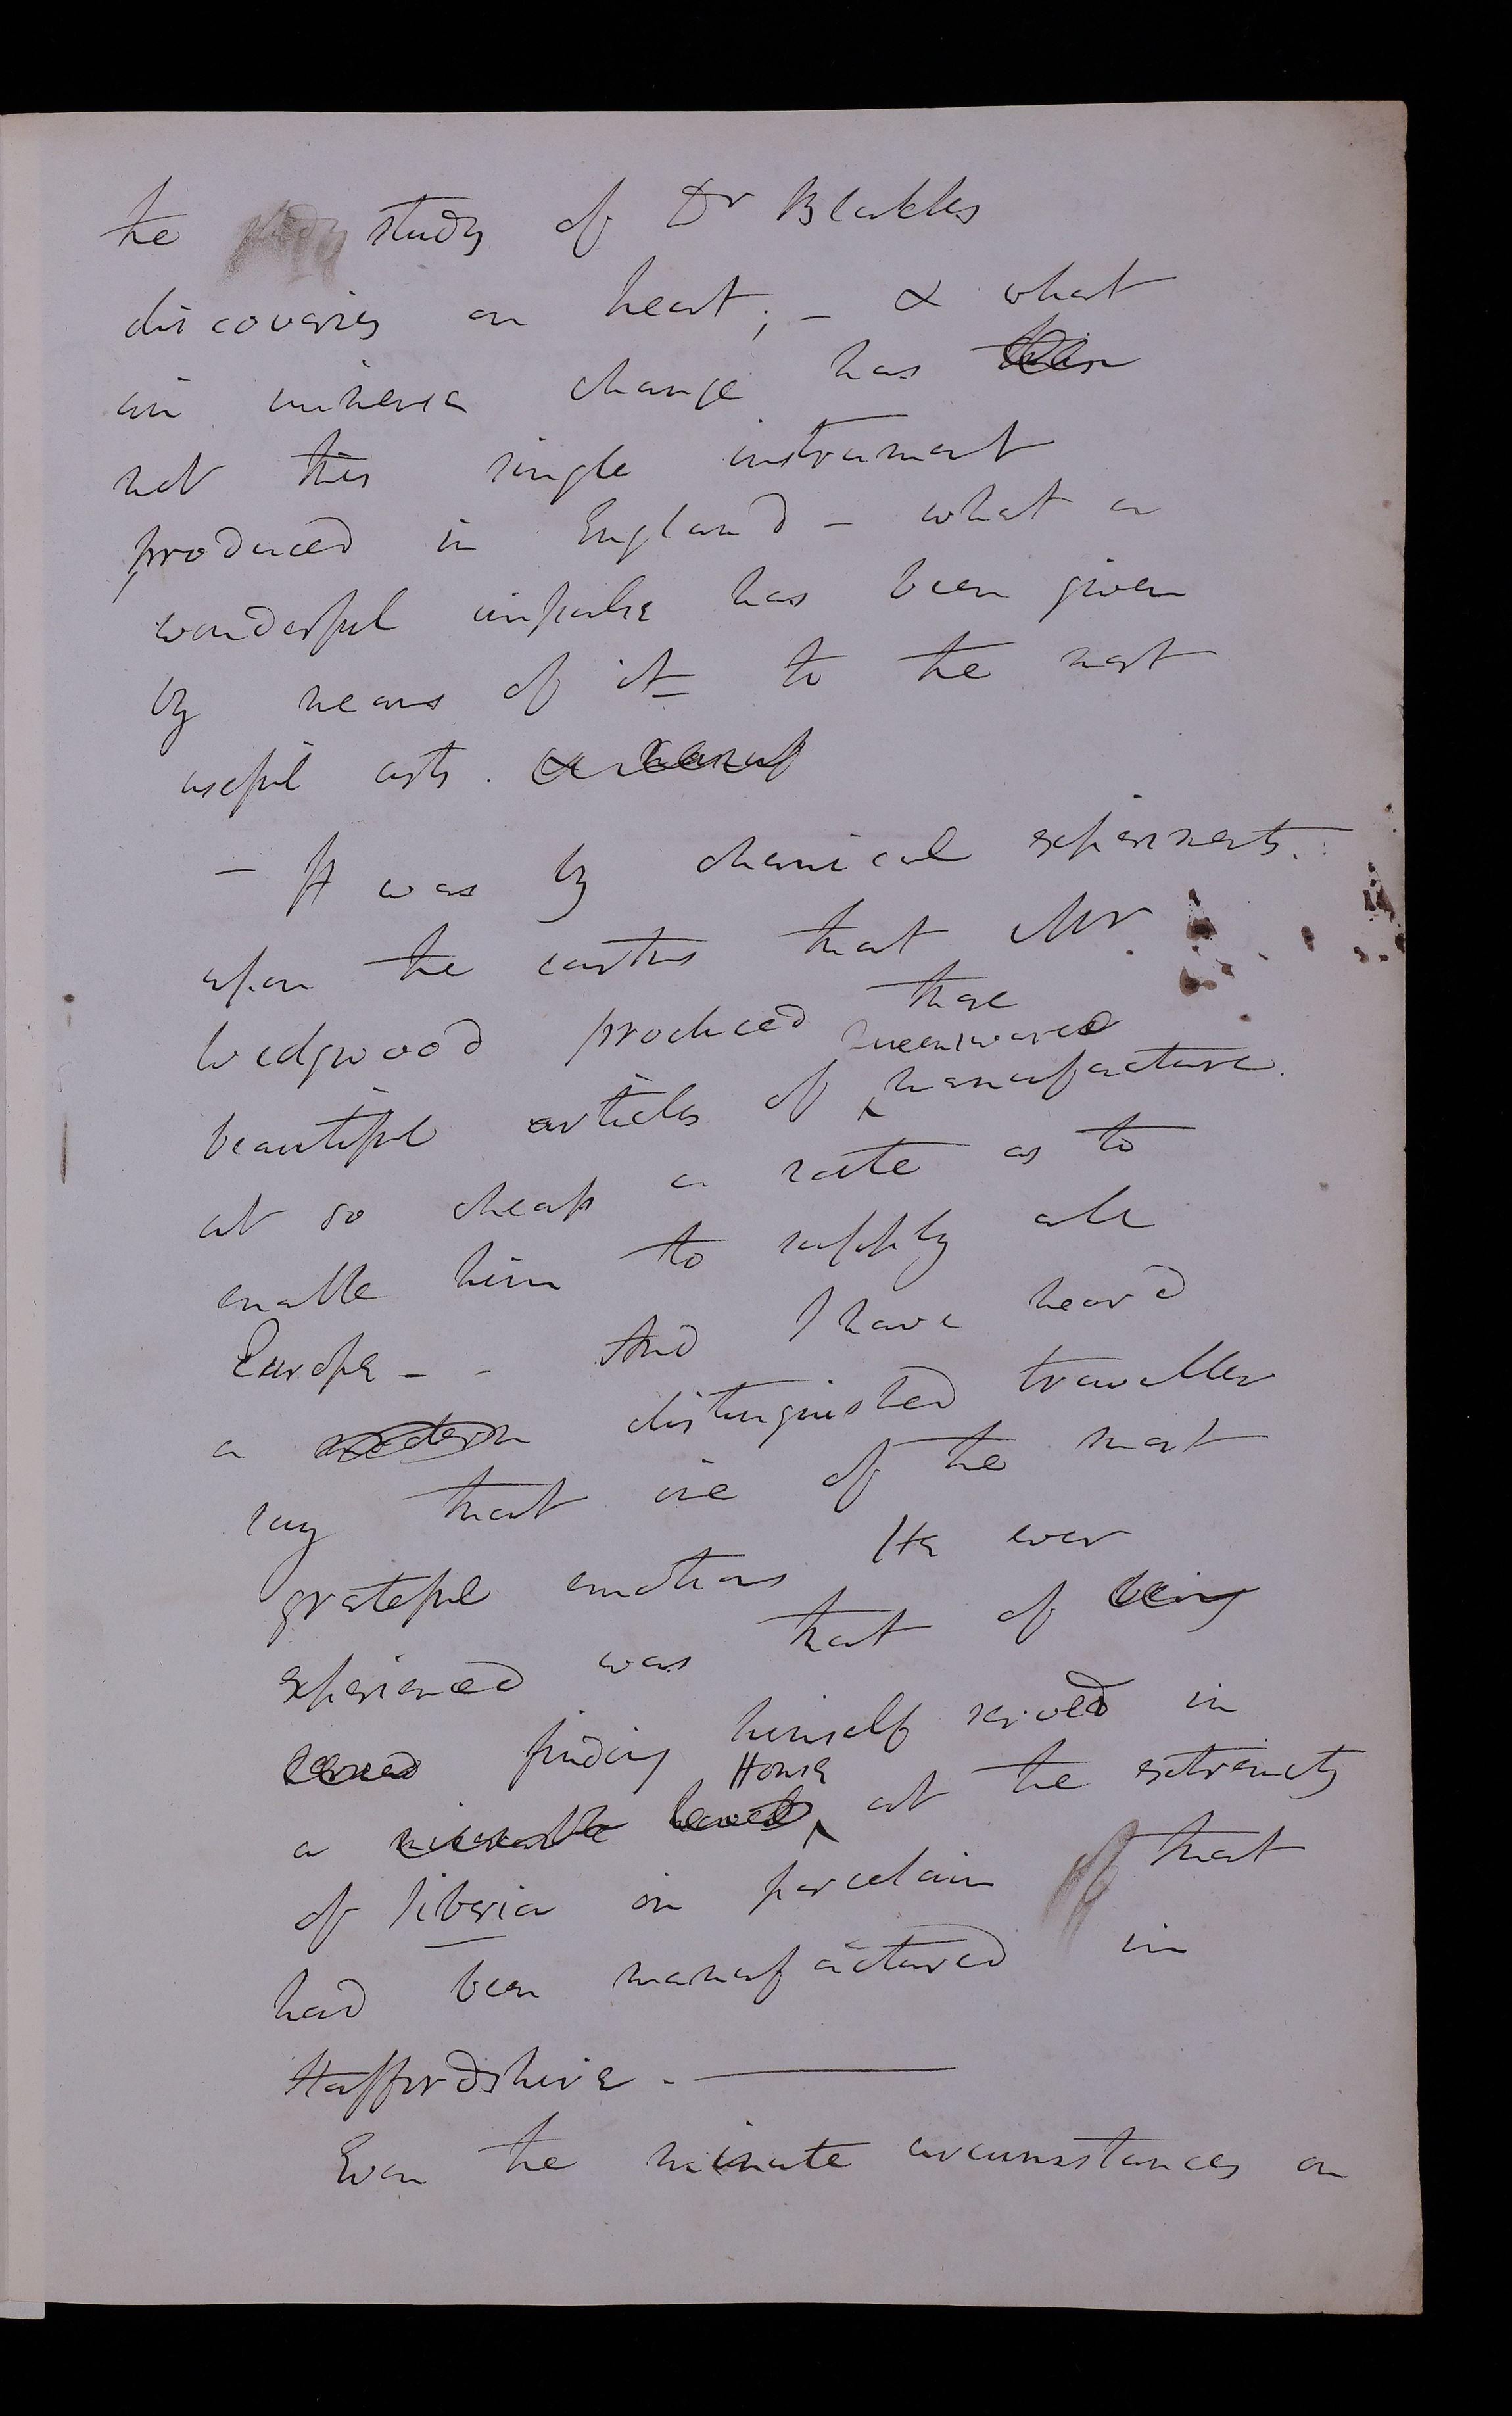 the study of Dr Blacks
discoveries on heat; - & what
an immense change has
not this single instrument
produced in England - what a
wonderful impulse has been given
by means of it to the most
useful arts.
- It was by chemical experiments
upon the earths that Mr
Wedgwood produced those
beautiful articles of queensware manufacture.
at so cheap a rate as to
enable him to supply all
Europe - - And I have heard
a modern distinguished traveller
say that one of the most
grateful emotions He ever
experienced was that of being
served finding himself served in
a miserable hovel House at the extremity
of Siberia on porcelain that
had been manufactured in
Staffordshire. -
Even the minute circumstances on